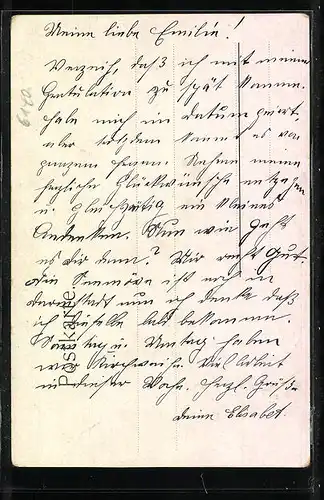 Meine liebe Emilie!
Verzeih, daß ich mit meiner
Gratulation zu spät komme.
habe mich im datum geirrt.
aber trotzdem kommt es von
ganzem Herzen. Nehme meine
herzliche Glückwünsche entgegen
u. gleichzeitig ein kleines
Andenken. Nun wie geht
es dir denn? Mir recht gut.
ist noch in
nun ich denke daß
ich bald bekomme.
Sonntag u. Montag haben
wir Kirchweih. Viel Arbeit
in dieser Woche. Herzl. Grüße
deine Elisabet.
Postkarte